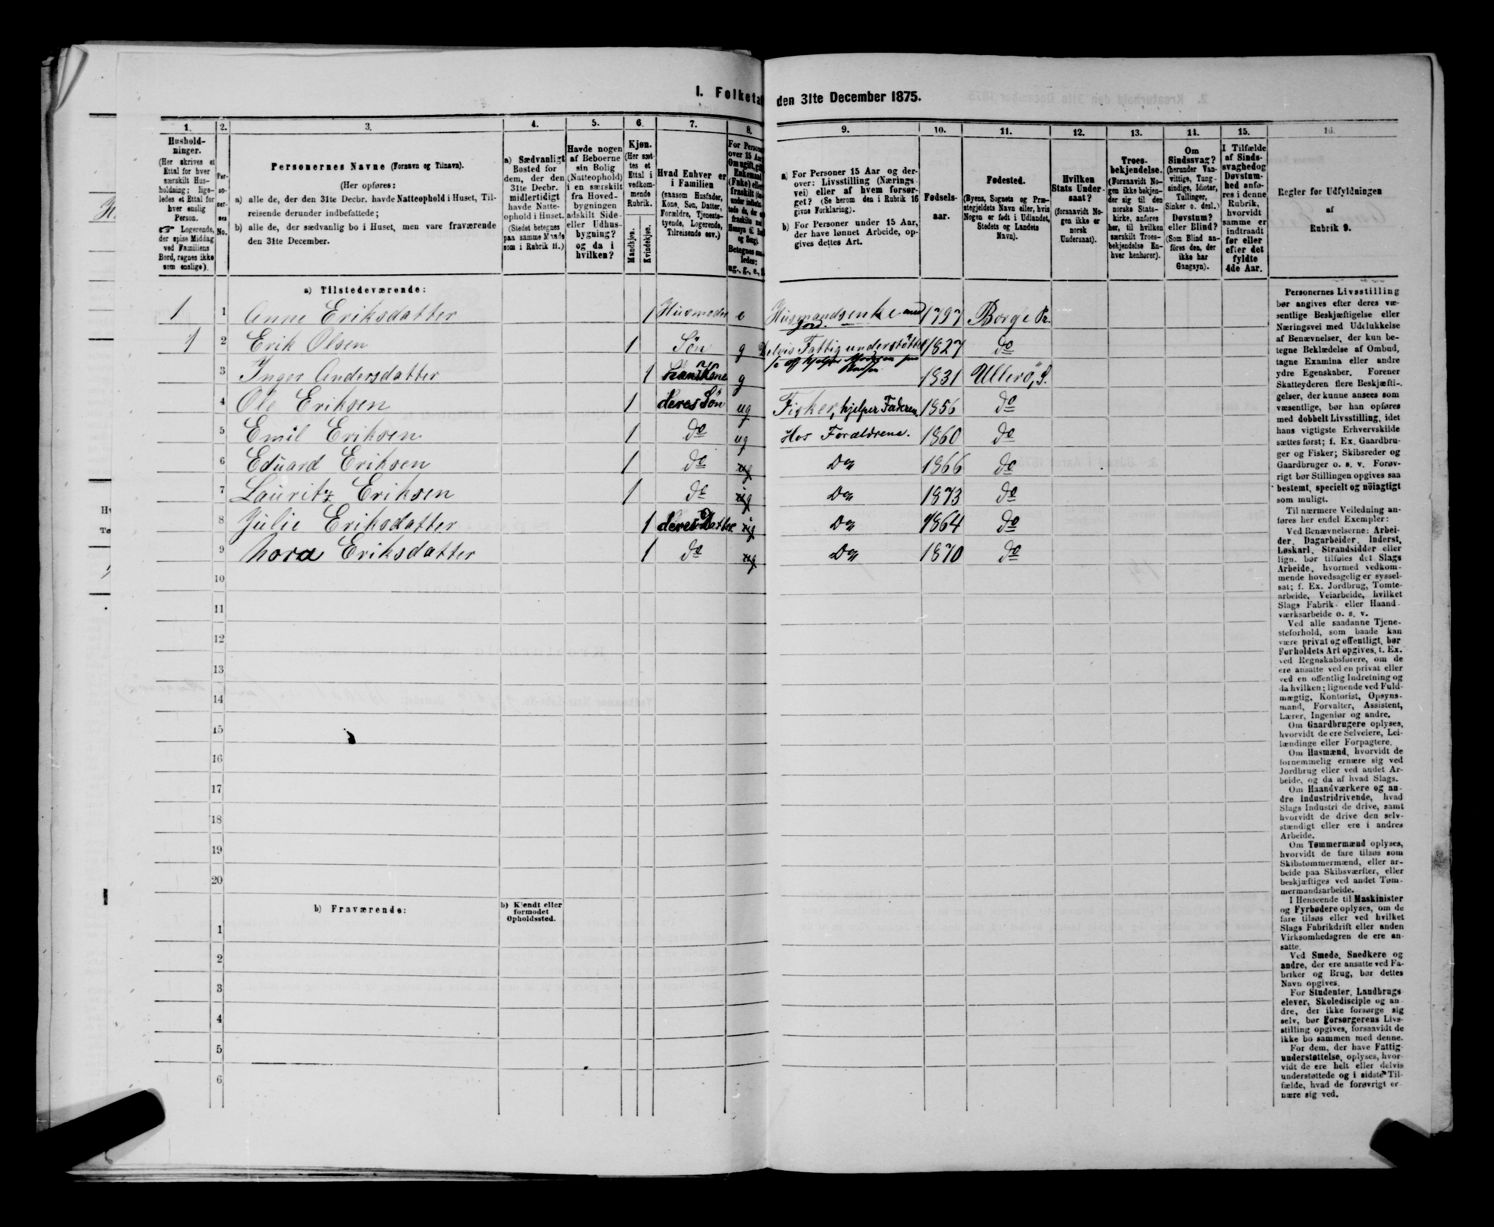 I. Folketæ den 31te December 1875.
1. 2. 3. 4. 5. 6. 7. 8. 9. 10. 11. 12. 13. 14. 15. 16.
Hushold-
ninger.
(Her skrives et
Ettal for hver
særskilt Hus-
holdning; lige-
ledes et Ettal for
hver enslig
Person.
☞ Logerende,
der spise Middag
ved Familiens
Bord, regnes ikke
som enslige).
Per-
so-
ner-
nes
No.
Personernes Navne (Fornavn og Tilnavn).
(Her opføres:
a) alle de, der den 31te Decbr. havde Natteophold i Huset, Til-
reisende derunder indbefattede;
b) alle de, der sædvanlig bo i Huset, men vare fraværende
den 31te December.
a) Sædvanligt
Bosted for
dem, der den
31te Decbr.
midlertidigt
havde Natte-
ophold i Huset.
(Stedet betegnes
paa samme Maade
som i Rubrik 11.)
Havde nogen
af Beboerne
sin Bolig
(Natteophold)
i en særskilt
fra Hoved-
bygningen
adskilt Side-
eller Udhus-
bygning?
og da i
hvilken?
Kjøn.
(Her sæt-
tes et
Ettal i
vedkom-
mende
Rubrik.
Mandkjøn.
Kvindekjøn.
Hvad Enhver er
i Familien
(saasom Husfader,
Kone, Søn, Datter,
Forældre, Tjeneste-
tyende, Logerende,
Tilreisende osv.)
For Persone
over 15 Aar
Om ugift, gift
Enkemand
(Enke) eller
fraskilt
a) For Personer 15 Aar og der-
over: Livsstilling (Nærings-
vei) eller af hvem forsør-
get? (Se herom den i Rubrik 16
givne Forklaring).
b) For Personer under 15 Aar,
der have lønnet Arbeide, op-
gives dettes Art.
Fødsels-
aar.
Fødested.
(Byens, Sognets og Præ-
stegjeldets Navn eller, hvis
Nogen er født i Udlandet,
Stedets og Landets
Navn).
Hvilken
Stats Under-
saat?
(forsaavidt No-
gen ikke er
norsk
Undersaat).
Troes-
bekjendelse.
(Forsaavidt No-
gen ikke bekjen-
der sig til den
norske Stats-
kirke, anføres
her, til hvilken
særskilt Troes-
bekjendelse En-
hver henhører).
Om
Sindssvag?
(herunder Van-
vittige, Tung-
sindige, Idioter,
Tullinger,
Sinker o. desl.)
Døvstum?
eller Blind?
(Som Blind an-
føres den, der
ikke har
Gangsyn).
I Tilfælde
af Sinds-
svaghed og
Døvstum-
hed anfø-
res i denne
Rubrik,
hvorvidt
samme er
indtraadt
før eller
efter det
fyldte
4de Aar.
Regler for Udfyldningen
af
Rubrik 9.
a) Tilstedeværende:
1 1 Anne Eriksdatter 1 Husmoder e Husmandsenke med Jord. 1797 Borge Pr.
1 2 Erik Olsen 1 Søn g Delvis Fattigunderstøttet 1827 do
3 Inger Andersdatter 1 hans Kone g 1831 Ullerø, S.
4 Ole Eriksen 1 deres Søn ug Fisker, hjelper Faderen 1856 do
5 Emil Eriksen 1 do ug Hos Forældrene. 1860 do
6 Eduard Eriksen 1 do ug Do 1866 do
7 Lauritz Eriksen 1 do ug Do 1873 do
8 Julie Eriksdatter 1 deres Datter ug Do 1864 do
9 Nora Eriksdatter 1 do ug Do 1870 do
10
11
12
13
14
15
16
17
18
19
20
b) Fraværende:
b) Kjendt eller
formodet
Opholdssted.
1
2
3
4
5
6
Personernes Livsstilling
bør angives efter deres væ-
sentlige Beskjæftigelse eller
Næringsvei med Udelukkelse
af Benævnelser, der kun be-
tegne Beklædelse af Ombud,
tagne Examina eller andre
ydre Egenskaber. Forener
Skatteyderen flere Beskjæfti-
gelser, der kunne ansees som
væsentlige, bør han opføres
med dobbelt Livsstilling, idet
hans vigtigste Erhvervskilde
sættes først; f. Ex. Gaardbru-
ger og Fisker; Skibsreder og
Gaardbruger o. s. v. Forøv-
rigt bør Stillingen opgives saa
bestemt, specielt og nøiagtigt
som muligt.
Til nærmere Veiledning an-
føres her endel Exempler:
Ved Benævnelserne: Arbei-
der, Dagarbeider, Inderst,
Løskarl, Strandsidder eller
lign. bør tilføies det Slags
Arbeide, hvormed vedkom-
mende hovedsagelig er syssel-
sat; f. Ex. Jordbrug, Tomte-
arbeide, Veiarbeide, hvilket
Slags Fabrik- eller Haand-
værksarbeide o. s. v.
Ved alle saadanne Tjene-
steforhold, som baade kan
være privat og offentligt, bør
Forholdets Art opgives, f. Ex.
ved Regnskabsførere, om de
ere ansatte ved en privat eller
ved en offentlig Indretning og
da hvilken; lignende ved Fuld-
mægtig, Kontorist, Opsyns-
mand, Forvalter, Assistent,
Lærer, Ingeniør og andre.
Om Gaardbrugere oplyses,
hvorvidt de ere Selveiere, Lei-
lændinge eller Forpagtere.
Om Husmænd, hvorvidt de
fornemmelig ernære sig ved
Jordbrug eller ved andet Ar-
beide, og da af hvad Slags.
Om Haandværkere og an-
dre Industridrivende, hvad
Slags Industri de drive, samt
hvorvidt de drive den selv-
stændigt eller ere i andres
Arbeide.
Om Tømmermænd oplyses,
hvorvidt de fare tilsøs som
Skibstømmermænd, eller ar-
beide paa Skibsværfter, eller
beskjæftiges ved andet Tøm-
mermandsarbeide.
I Henseende til Maskinister
og Fyrbødere oplyses, om de
fare tilsøs eller ved hvilket
Slags Fabrikdrift eller anden
Virksomhedsgren de ere an-
satte.
Ved Smede, Snedkere og
andre, der ere ansatte ved Fa-
briker og Brug, bør dettes
Navn opgives.
For Studenter, Landbrugs-
elever, Skoledisciple og an-
dre, der ikke forsørge sig
selv, bør Forsørgerens Livs-
stilling opgives, forsaavidt de
ikke bo sammen med denne.
For dem, der have Fattig-
understøttelse, oplyses, hvor-
vidt de ere helt eller delvis
understøttede og i sidste Til-
fælde, hvad de forøvrigt er-
nære sig ved.